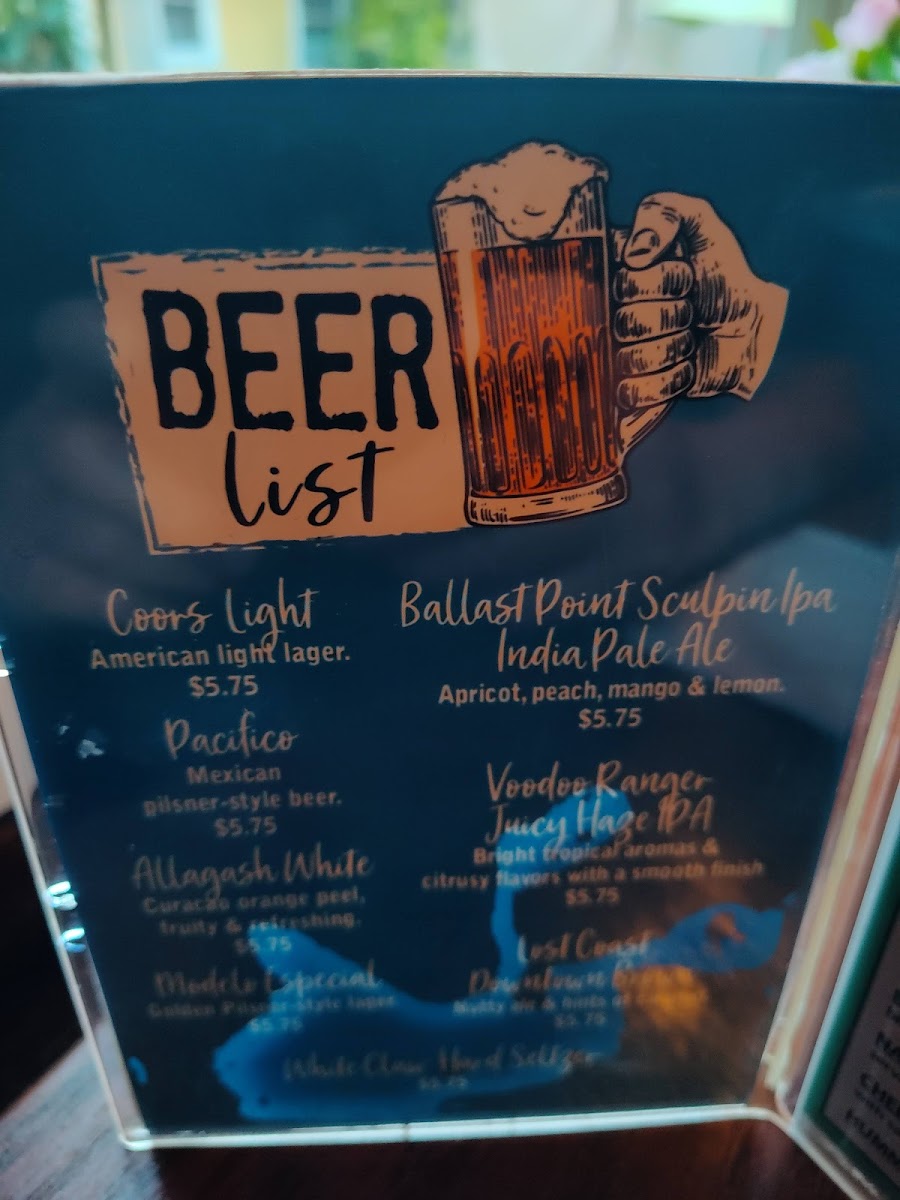 BEER
list
Coors Light
American light lager.
$5.75
Pacifico
Mexican
pilsner-style beer.
$5.75
Allagash White
Curacao orange peel,
fruity & refreshing.
$5.75
Modelo Especial
Golden Pilsner-Style lager
$5.75
Ballast Point Sculpin Ipa
India Pale Ale
Apricot, peach, mango & lemon.
$5.75
Voodoo Ranger
Juicy Haze IPA
Bright tropical aromas &
citrusy flavors with a smooth finish
$5.75
Lost Coast
Downtown Brown
Nutty ale & hints of
$5.75
White Claw Hard Seltzer
$5.75